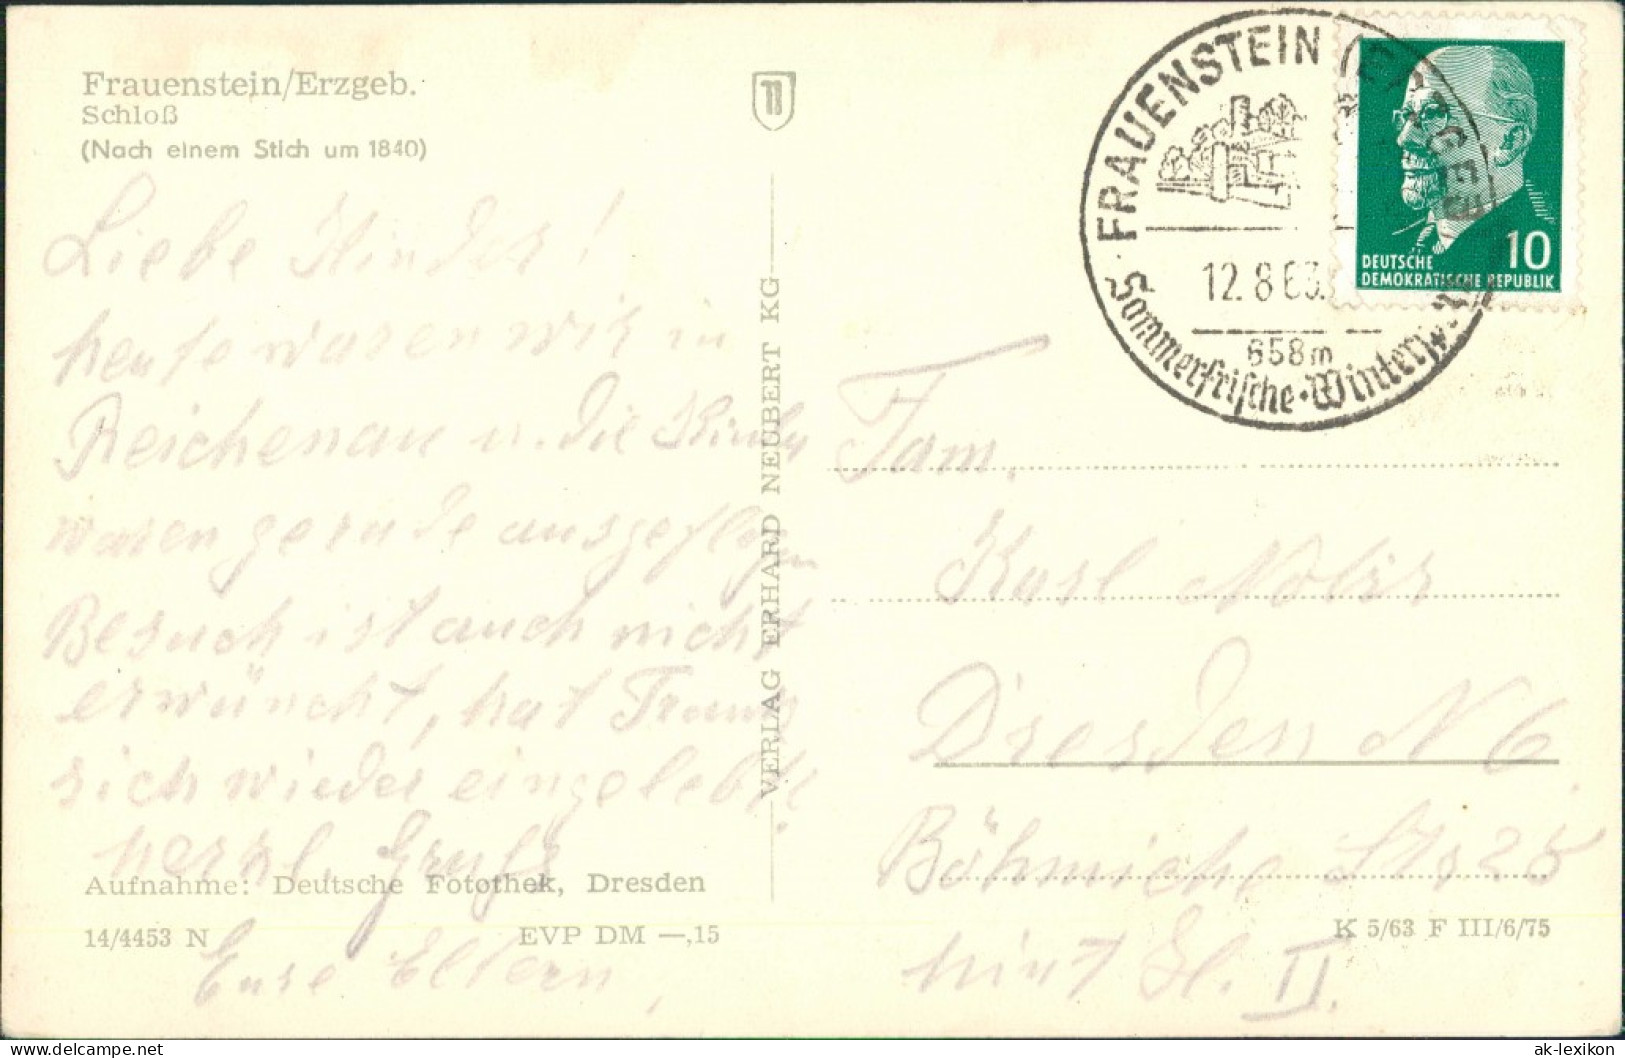 Frauenstein/Erzgeb.
Schloß
(Nach einem Stich um 1840)
Liebe Kinder!
heute waren wir in
Reichenau u. die Kinder
waren gerade ausgeflogen
Besuch ist auch nicht
erwüncht, hat Traudl
sich wieder eingelebt?
herzl. Grüße
Eure Eltern,
Aufnahme: Deutsche Fotothek, Dresden
14/4453 N
EVP DM —,15
VERLAG ERHARD NEUBERT KG
FRAUENSTEIN (ERZGEB.)
12.8.63.
658m
Sommerfrische · Winter
10
DEUTSCHE
DEMOKRATISCHE REPUBLIK
Fam.
Karl
Dresden N 6.
Böhmiche Str 25
hint Gb. II.
K 5/63 F III/6/75
delcampe.net
ak-lexikon